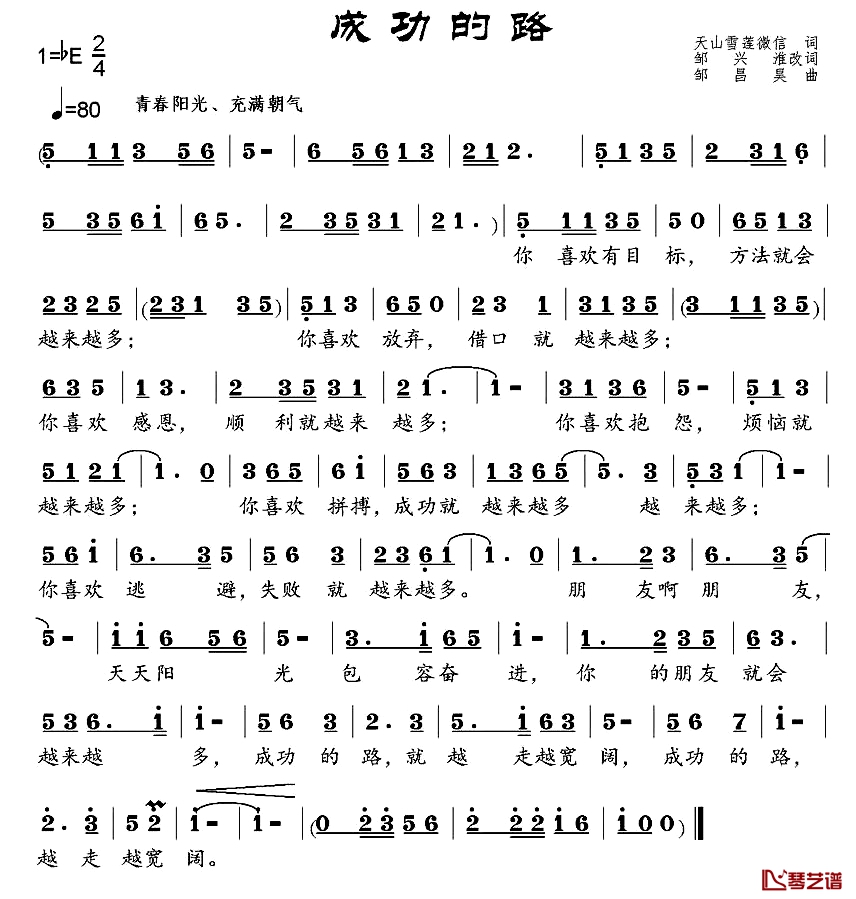 成功的路
1=♭E 2/4
天山雪莲微信 词
邹兴淮改词
邹昌昊 曲
♩=80 青春阳光、充满朝气
(5 113 56 | 5- | 6 5613 | 212. | 5135 | 2 3116 |
5 3561 | 65. | 2 3531 | 21.) | 5 1135 | 50 | 6513 |
你 喜欢有目 标， 方法就会
2325 | (231 35) | 513 | 650 | 23 1 | 3135 | (3 1135) |
越来越多； 你喜欢 放弃， 借口 就 越来越多；
635 | 13. | 2 3531 | 21. | 1- | 3136 | 5- | 513 |
你喜欢 感恩， 顺 利就越来 越多； 你喜欢抱 怨， 烦恼就
5121 | 1. 0 | 365 | 61 | 563 | 1365 | 5. 3 | 531 | 1- |
越来越多； 你喜欢 拼搏，成功就 越来越多 越 来越多；
561 | 6. 35 | 56 3 | 2361 | 1. 0 | 1. 23 | 6. 35 |
你喜欢 逃 避，失败 就 越来越多。 朋 友啊 朋 友，
5- | 116 56 | 5- | 3. 1 65 | 1- | 1. 235 | 63. |
天天阳 光 包 容奋 进， 你 的朋友 就会
536. 1 | 1- | 56 3 | 2. 3 | 5. 163 | 5- | 56 7 | 1- |
越来越 多，成功 的 路，就 越 走越宽 阔，成功 的 路，
2. 3 | 52 | 1- | 1- | (0 2356 | 2 2216 | 100) ||
越 走 越宽 阔。
琴艺谱